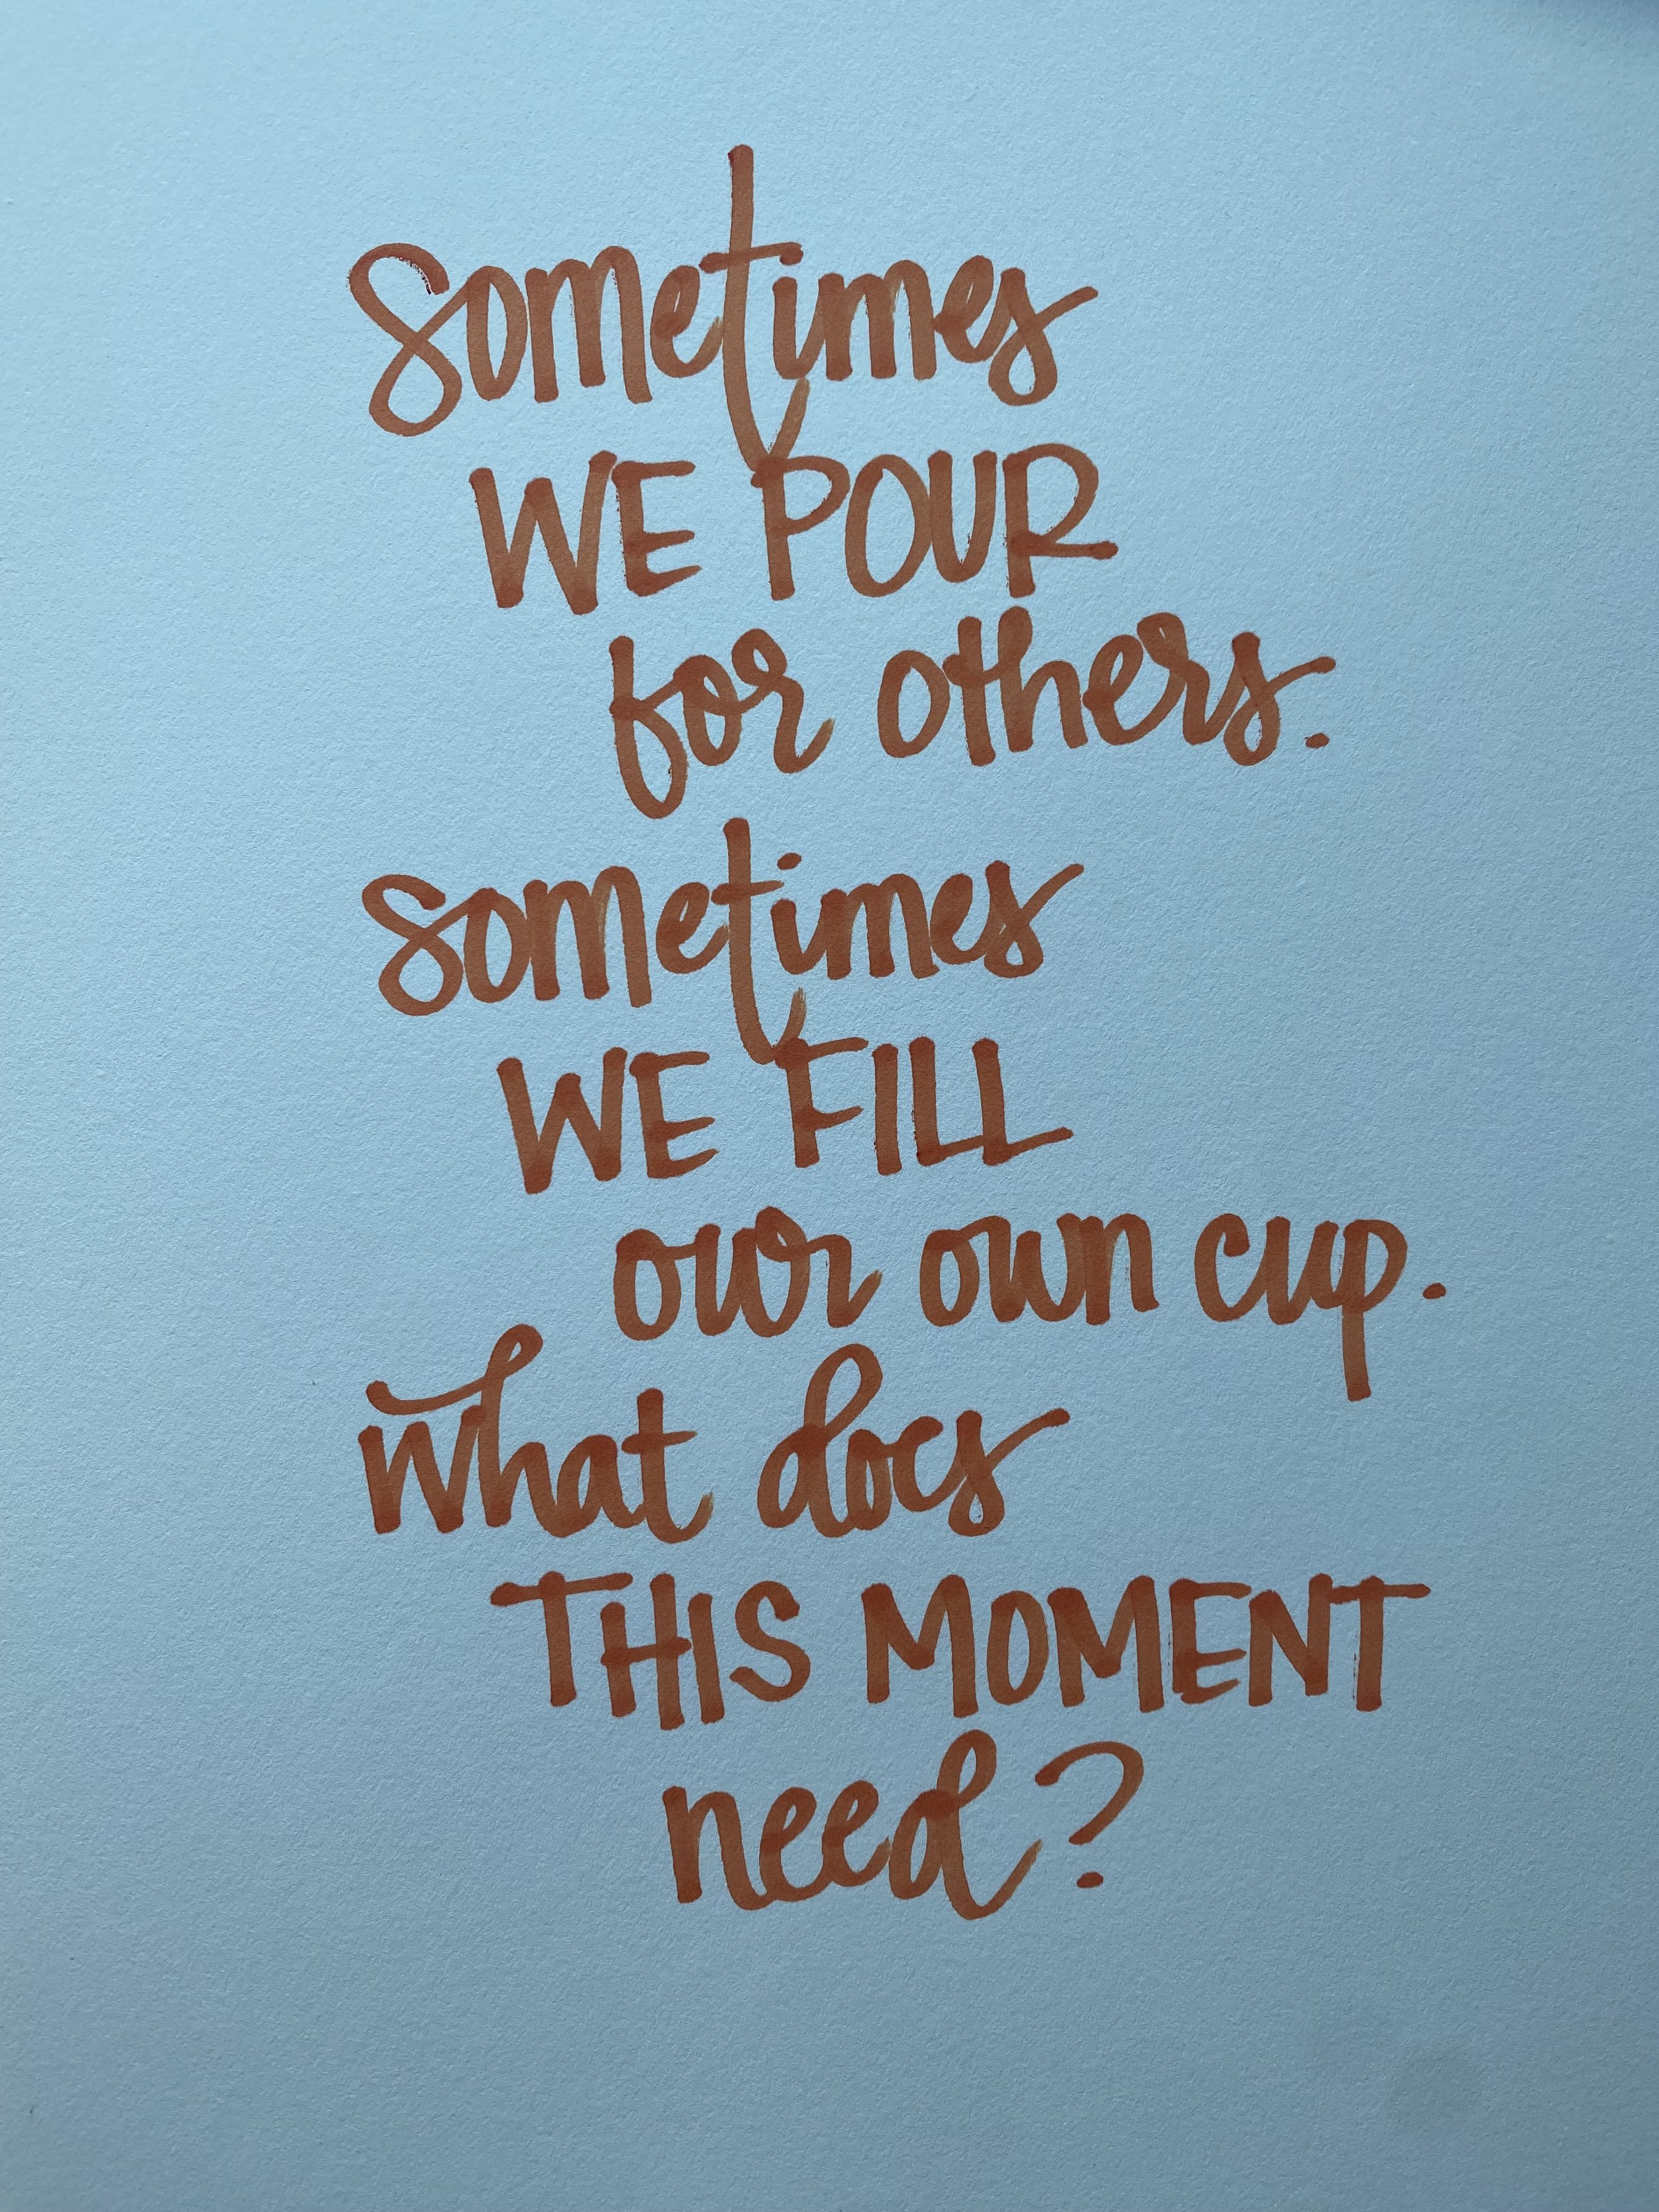 Sometimes
WE POUR
for others.
Sometimes
WE FILL
our own cup.
What does
THIS MOMENT
need?